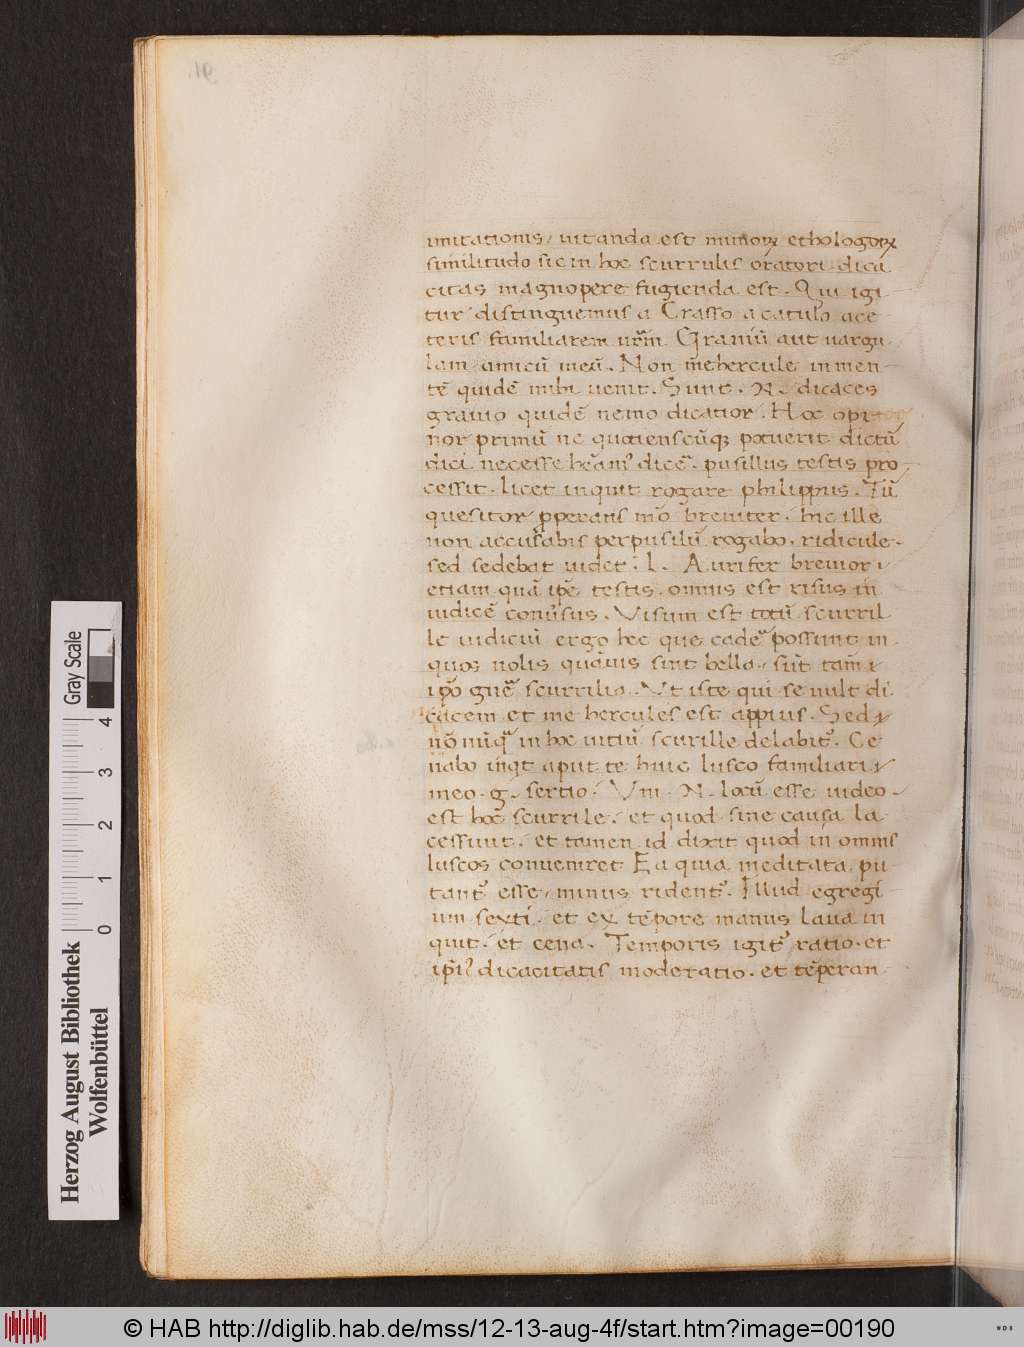 imitationis / uitanda est mimoꝝ ethologoꝝ
similitudo sic in hoc scurrulis oratori dica
citas magnopere fugienda est. Qui igi
tur distinguemus a Crasso a catulo ace
teris familiarem ur̄m Graniū aut uargu
lam amicū meū. Non mehercule in men
tē quidē mihi uenit. Sunt .N. dicaces
grauio quidē nemo dicatior. Hoc opi
nor primū ne quotienscūqꝫ potuerit dictū
dici necesse dicer̄. pusillus testis pro
cessit. licet inquit rogare philippus. Tū
quesitor ꝓperans mō breuiter. hic ille
non accusabis perpusilū rogabo. ridicule.
sed sedebat iudex. l. Aurifex breuior
etiam quā ip̄e testis. omnis est risus in
iudicē conūsus. Visum est totū scurril
le iudiciū ergo hec que cader̄ possunt in
quos nolis quāuis sint bella, sūt tam̄
ip̄o gn̄e scurrilia. Vt iste qui se uult di
cacem et me hercules est appius. Sed
nō in hoc uitiū scurille delabit̄. Ce
nabo inqt aput te huic lusco familiari
meo .g. sertio. Vni .N. locū esse uideo.
est hoc scurrile. et quod sine causa la
cessiuit. et tamen id dixit quod in omnis
luscos conueniret Ea quia meditata pu
tant̄ esse, minus rident̄. Illud egregi
um sexti. et ex tēpore manus laua in
quit. et cena. Temporis igit̄ ratio. et
ip̄i dicacitatis moderatio. et tēperan
91.
Herzog August Bibliothek
Wolfenbüttel
Gray Scale
0 1 2 3 4
© HAB http://diglib.hab.de/mss/12-13-aug-4f/start.htm?image=00190